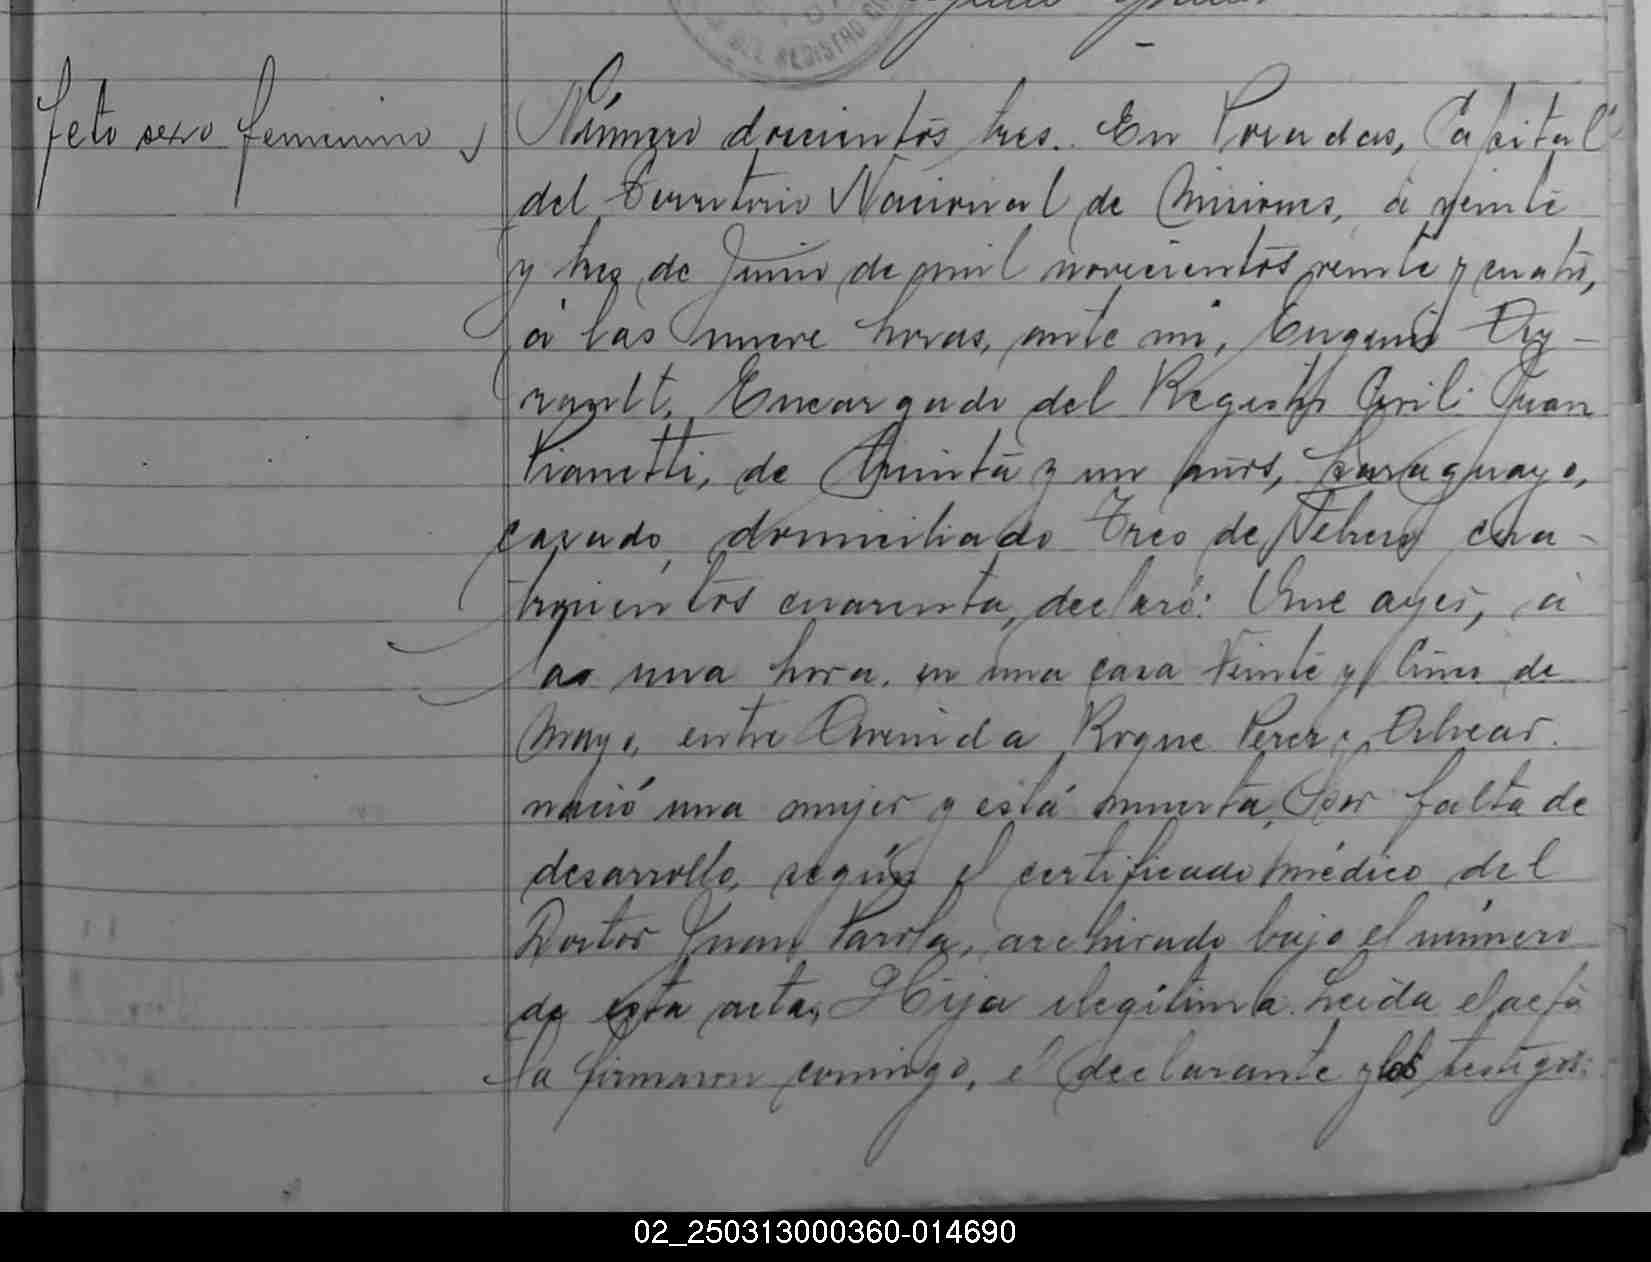 DEL REGISTRO
feto sexo femenino
Número doscientos tres. En Posadas, Capital
del Territorio Nacional de Misiones, á veinte
y tres de Junio de mil novecientos veinte y cuatro,
á las nueve horas, ante mi, Eugenio Ay-
rault, Encargado del Registro Civil: Juan
Pianetti, de treinta y un años, Paraguayo,
casado, domiciliado Tres de Febrero cua-
trocientos cuarenta, declaró: Que ayer, á
las una hora, en una casa Veinte y Cinco de
Mayo, entre Avenida Roque Perez y Alvear.
nació una mujer y está muerta, por falta de
desarrollo, según el certificado médico del
Doctor Juan Parola, archivado bajo el número
de esta acta, Hija ilegítima. Leida el acta
la firmaron comigo, el declarante y los testigos:
02_250313000360-014690